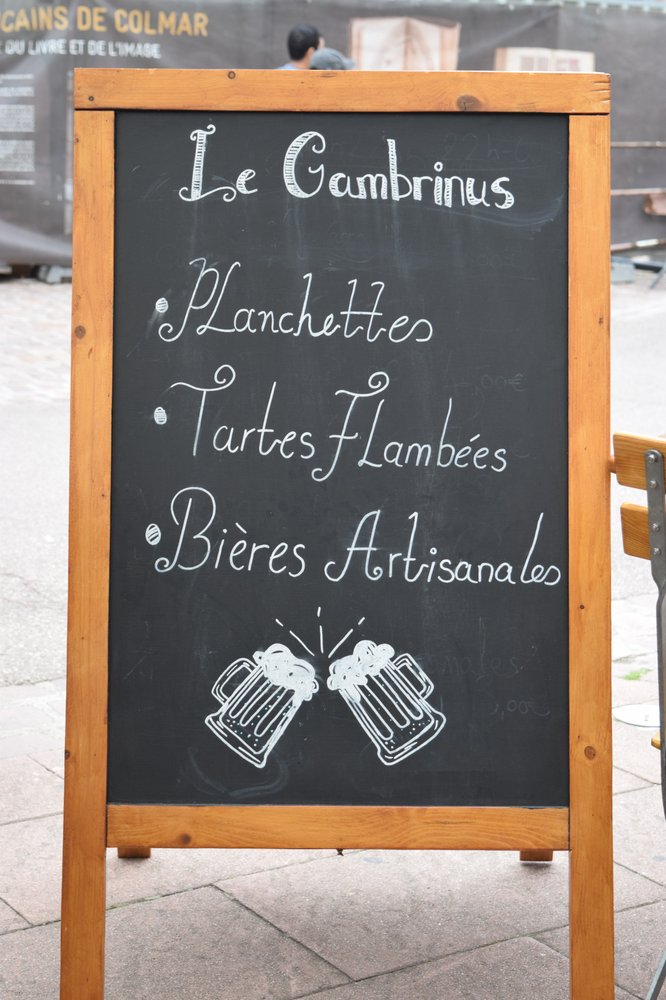 CAINS DE COLMAR
DU LIVRE ET DE L'IMAGE
Le Gambrinus
• Planchettes
• Tartes Flambées
• Bières Artisanales